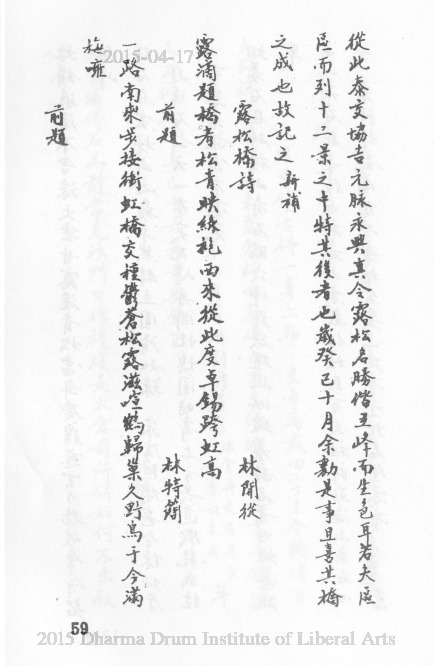 從此泰交協吉元脉永興真令露松名勝偕五峰而生色耳若夫區
區而列十二景之中特其後者也歲癸巳十月余勷是事且喜其橋
之成也故記之 新補
露松橋詩 林開從
露滴題橋者松青映綠袍西來從此度卓錫跨虹高
前題 林特蒟
一路南來步接街虹橋交種鬱蒼松露滋喧鶴歸巢久野鳥于今滿
樹雝
前題
59
2015-04-17
2015 Dharma Drum Institute of Liberal Arts